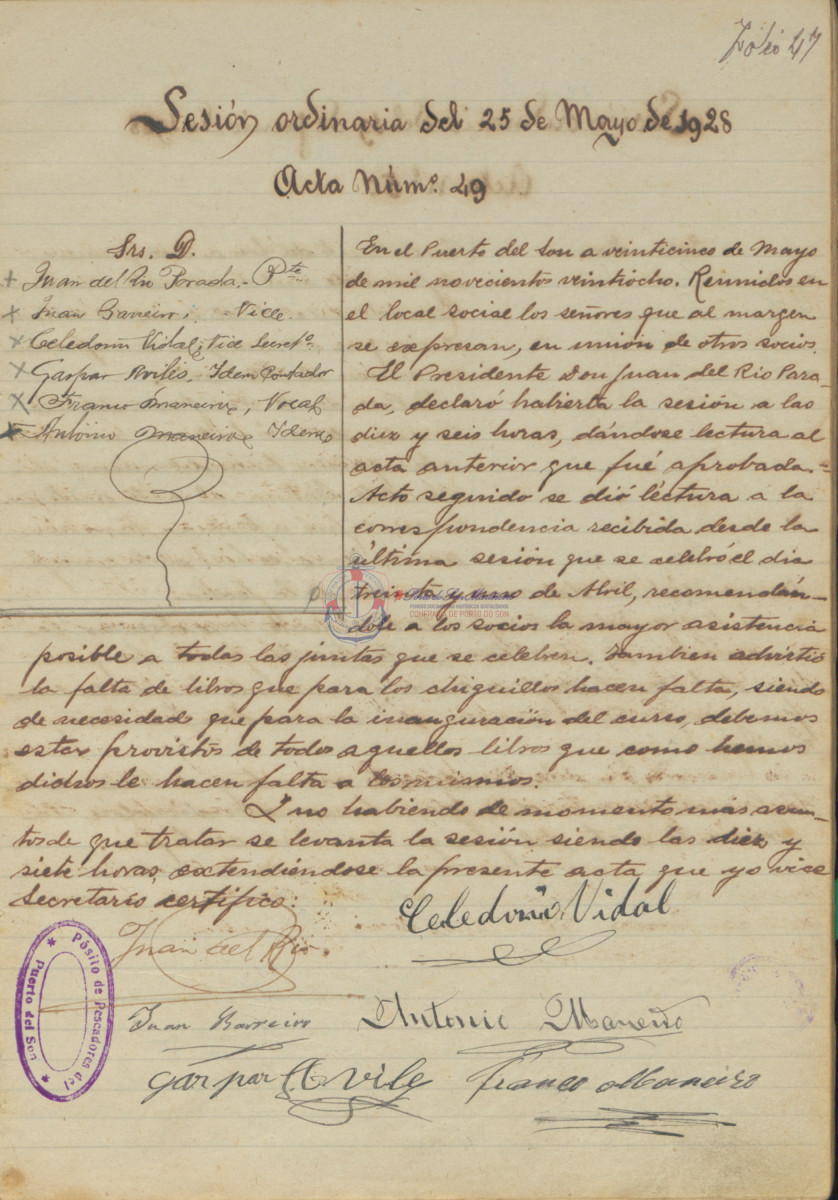 Folio 47
Sesión ordinaria del 25 de Mayo de 1928
Acta Núm.º 49
Srs. D.
+ Juan del Rio Parada.- Pte
x Juan Barreiro, Vice.
x Celedonio Vidal, Vice Secretº.
x Gaspar Avilés, Idem Contador
x Franco Maneiro, Vocal
x Antonio Maneiro Idem
En el Puerto del Son a veinticinco de Mayo
de mil novecientos veintiocho. Reunidos en
el local social los señores que al margen
se expresan, en unión de otros socios.
El Presidente Don Juan del Rio Para-
da, declaró habierta la sesión a las
diez y seis horas, dándose lectura al
acta anterior que fué aprobada.=
Acto seguido se dió léctura a la
correspondencia recibida desde la
última sesión que se celebró el dia
treinta y uno de Abril, recomendán-
dole a los socios la mayor asistencia
posible a todas las juntas que se celebren. Tambien advirtió
la falta de libros que para los chiquillos hacen falta, siendo
de necesidad que para la inauguración del curso, debemos
estar provistos de todos aquellos libros que como hemos
dichos le hacen falta a los mismos.
Y no habiendo de momento más asun-
tos de que tratar se levanta la sesión siendo las diez y
siete horas, extendiéndose la presente acta que yo vice
Secretario certifico:
Celedonio Vidal
Juan del Rio.
Juan Barreiro
Antonio Maneiro
Gaspar Avile
Franco Maneiro
Pósito de Pescadores del
Puerto del Son
CONFRARÍA DE PORTO DO SON